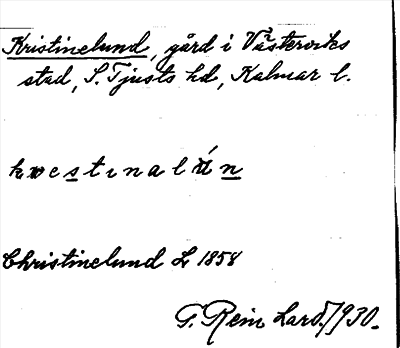 Kristinelund, gård i Västerviks
stad, S. Tjusts hd, Kalmar l.
Christinelund L 1858
G. Rein Lard. 1930.